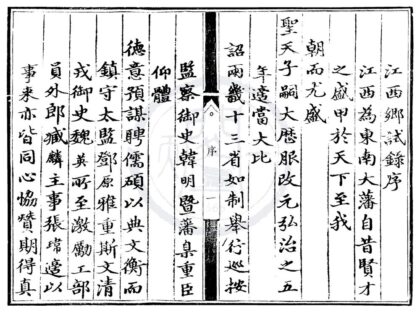 江西鄉試錄序
江西為東南大藩自昔賢才
之盛甲於天下至我
朝而尤盛
聖天子嗣大歷服改元弘治之五
年適當大比
詔兩畿十三省如制舉行巡按
序
一
監察御史韓明暨藩臬重臣
仰體
德意預謀聘儒碩以典文衡而
鎮守太監鄧原雅重斯文清
戎御史魏英所至激勵工部
員外郎臧麟主事張瑋適以
事来亦皆同心協贊期得真